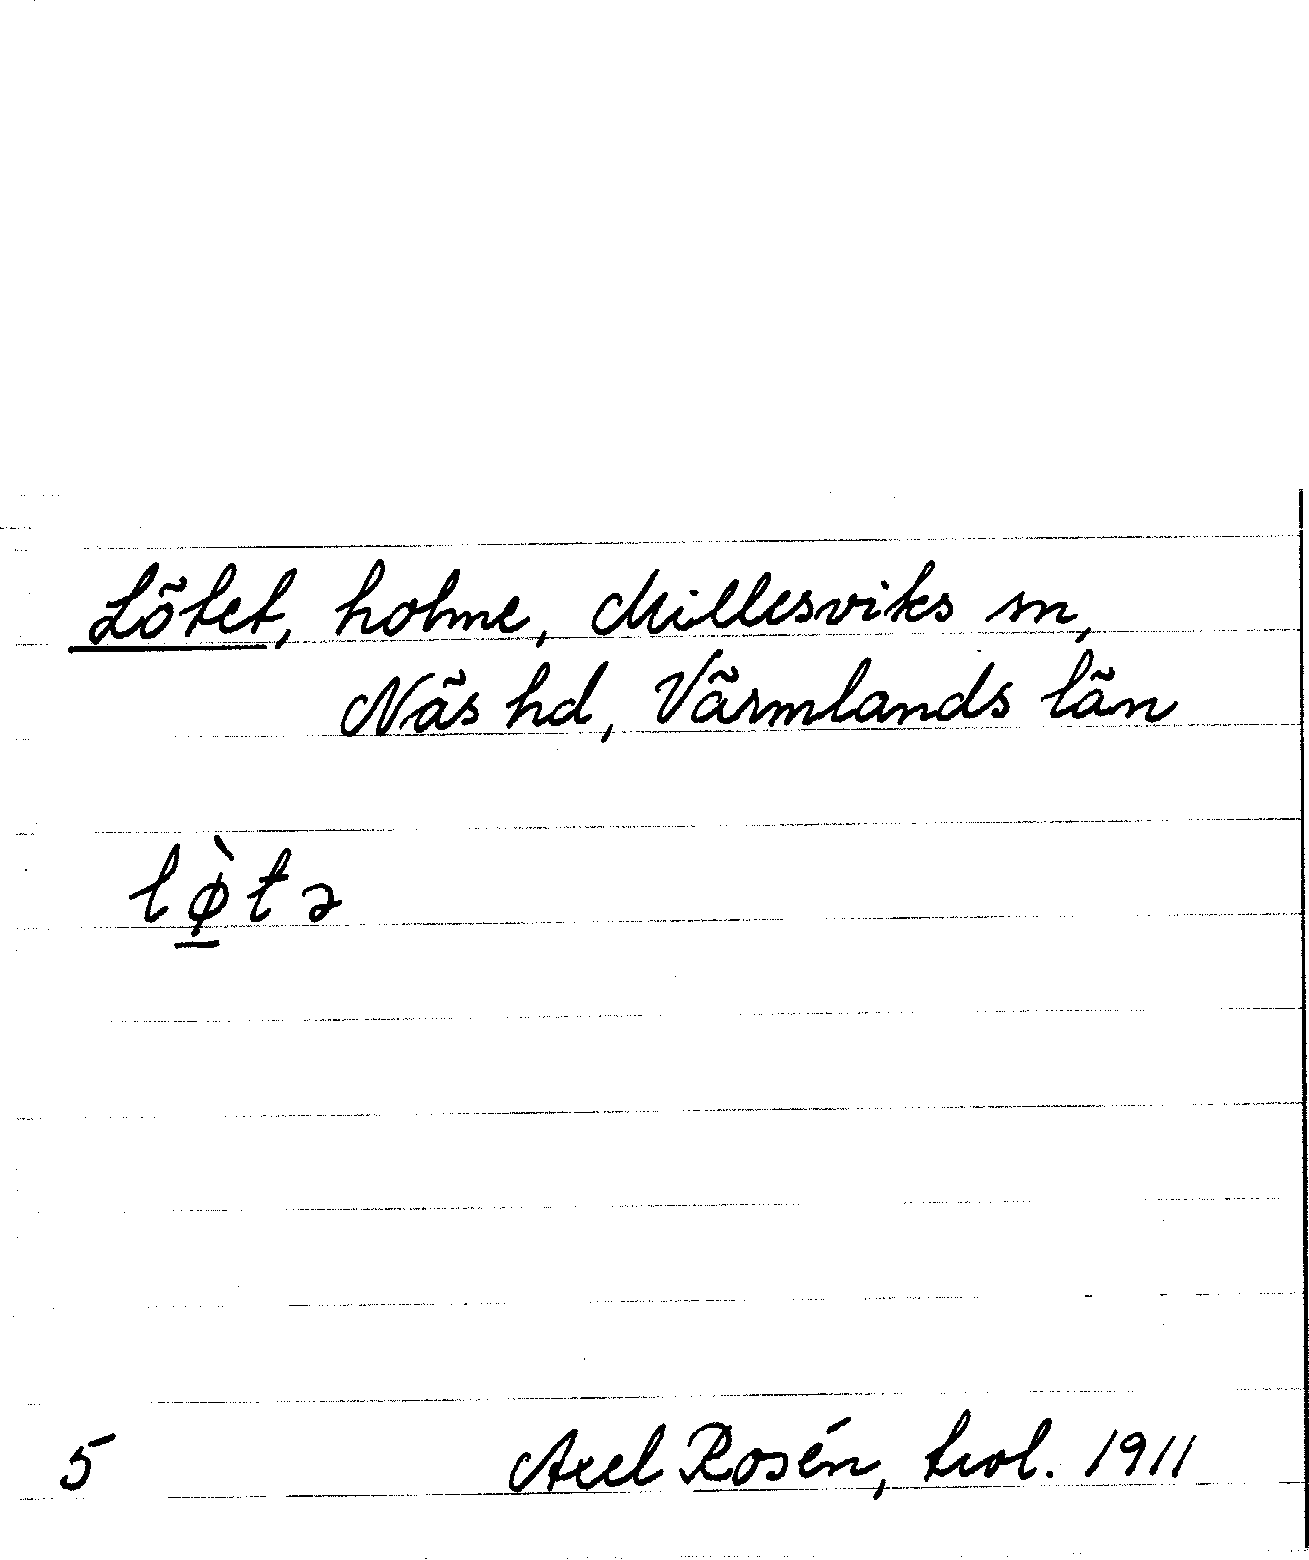 Lötet, holme, Millesviks sn,
Näs hd, Värmlands län
lø̱̀tə
5 Axel Rosén, trol. 1911